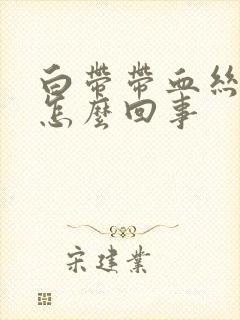 白帶帶血絲
怎麼回事
宋建業